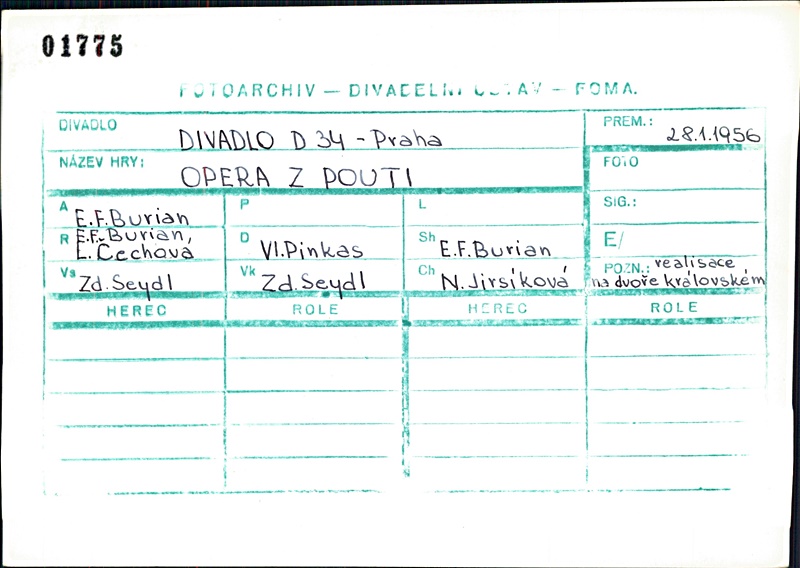 01775
FOTOARCHIV — DIVADELNÍ ÚSTAV — FOMA.
DIVADLO DIVADLO D 34 - Praha PREM.: 28.1.1956
NÁZEV HRY: OPERA Z POUTI FOTO
A E.F.Burian P L SIG.:
R E.F. Burian, E. Čechová D Vl.Pinkas Sh E.F.Burian E/
Vs Zd.Seydl Vk Zd.Seydl Ch N.Jirsíková POZN.: realisace
na dvoře královském
HEREC ROLE HEREC ROLE